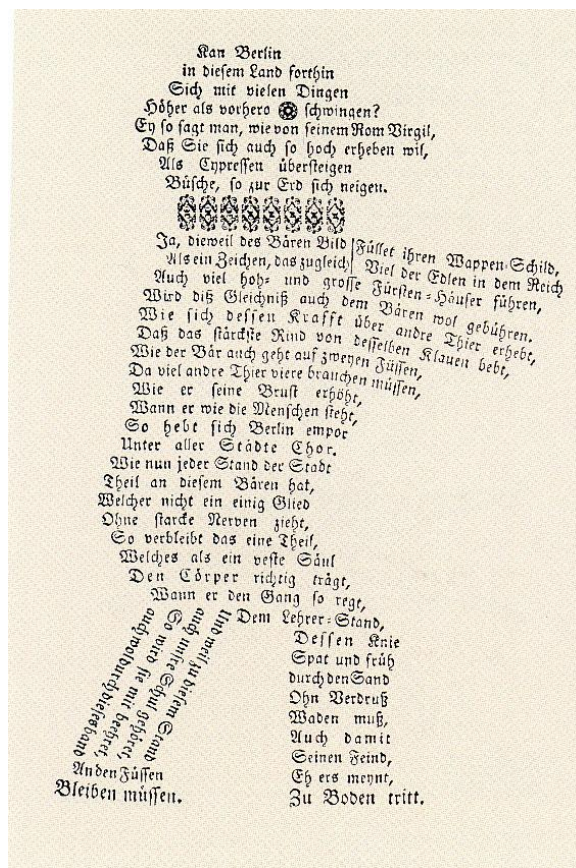 Kan Berlin
in diesem Land forthin
Sich mit vielen Dingen
Höher als vorhero schwingen?
Ey so sagt man, wie von seinem Rom Virgil,
Daß Sie sich auch so hoch erheben wil,
Als Cypressen übersteigen
Büsche, so zur Erd sich neigen.
Ja, dieweil des Bären Bild Füllet ihren Wappen-Schild,
Als ein Zeichen, das zugleich Viel der Edlen in dem Reich
Auch viel hoh- und grosse Fürsten-Häuser führen,
Wird diß Gleichniß auch dem Bären wol gebühren.
Wie sich dessen Krafft über andre Thier erhebt,
Daß das stärckste Rind von desselben Klauen bebt,
Wie der Bär auch geht auf zweyen Füssen,
Da viel andre Thier viere brauchen müssen,
Wie er seine Brust erhöht,
Wann er wie die Menschen steht,
So hebt sich Berlin empor
Unter aller Städte Chor.
Wie nun jeder Stand der Stadt
Theil an diesem Bären hat,
Welcher nicht ein einig Glied
Ohne starcke Nerven zieht,
So verbleibt das eine Theil,
Welches als ein veste Säul
Den Cörper richtig trägt,
Wann er den Gang so regt,
Dem Lehrer-Stand,
Dessen Knie
Spat und früh
durch den Sand
Ohn Verdruß
Waden muß,
Auch damit
Seinen Feind,
Eh ers meynt,
Zu Boden tritt.
Und weil zu diesem Stand
auch unsre Schul gehöret,
So wird sie mit beehret,
auch wol durch dieses band
An den Füssen
Bleiben müssen.